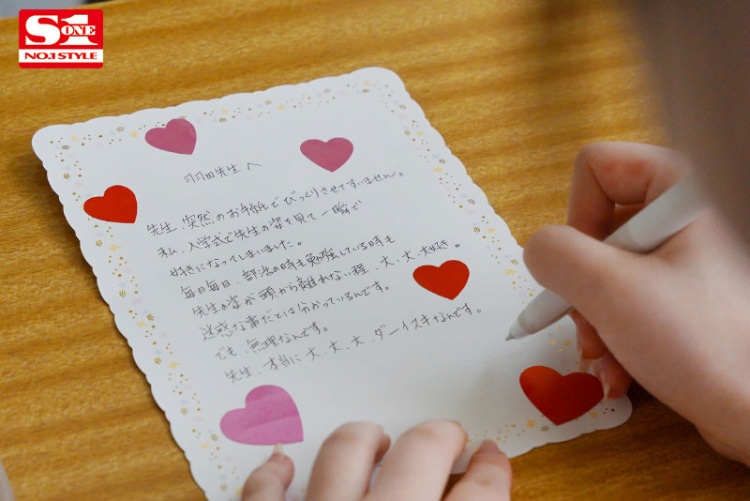 S1
ONE
NO.1 STYLE
羽田先生へ
先生、突然のお手紙でびっくりさせてすいません。
私、入学式で先生の姿を見て一瞬で
好きになってしまいました。
毎日毎日、部活の時も勉強している時も
先生の姿が頭から離れない程、大、大、大好き。
迷惑な事だとは分かっているんです。
でも、無理なんです。
先生、本当に大、大、大、ダーイスキなんです。